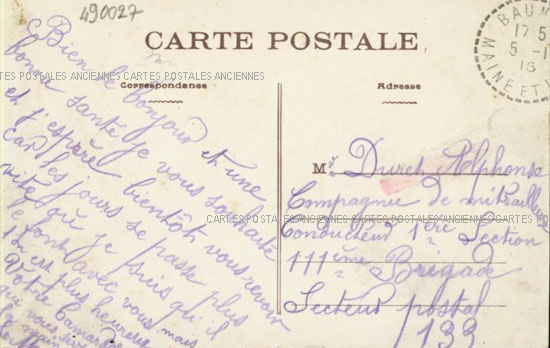 490027
BAUN
17 5
5 -1
16
MAINE ET L
CARTE POSTALE
CARTES POSTALES ANCIENNES CARTES POSTALES ANCIENNES
Correspondance
Adresse
Bien le bonjour et une
bonne santé je vous souhaite
et j'espère bientôt vous revoir
car les jours se passe plus
vite que je suis qu'il
se sont avec vous mais
plus heureux
Votre Camarade
qui vous
la main
Mr Duret Alphonse
Compagnie de mitrailleu
CARTES POSTALES ANCIENNES CARTES POSTALES ANCIENNES CARTES POSTALES
Conducteur 1ère Section
111ème Brigade
Secteur postal
133